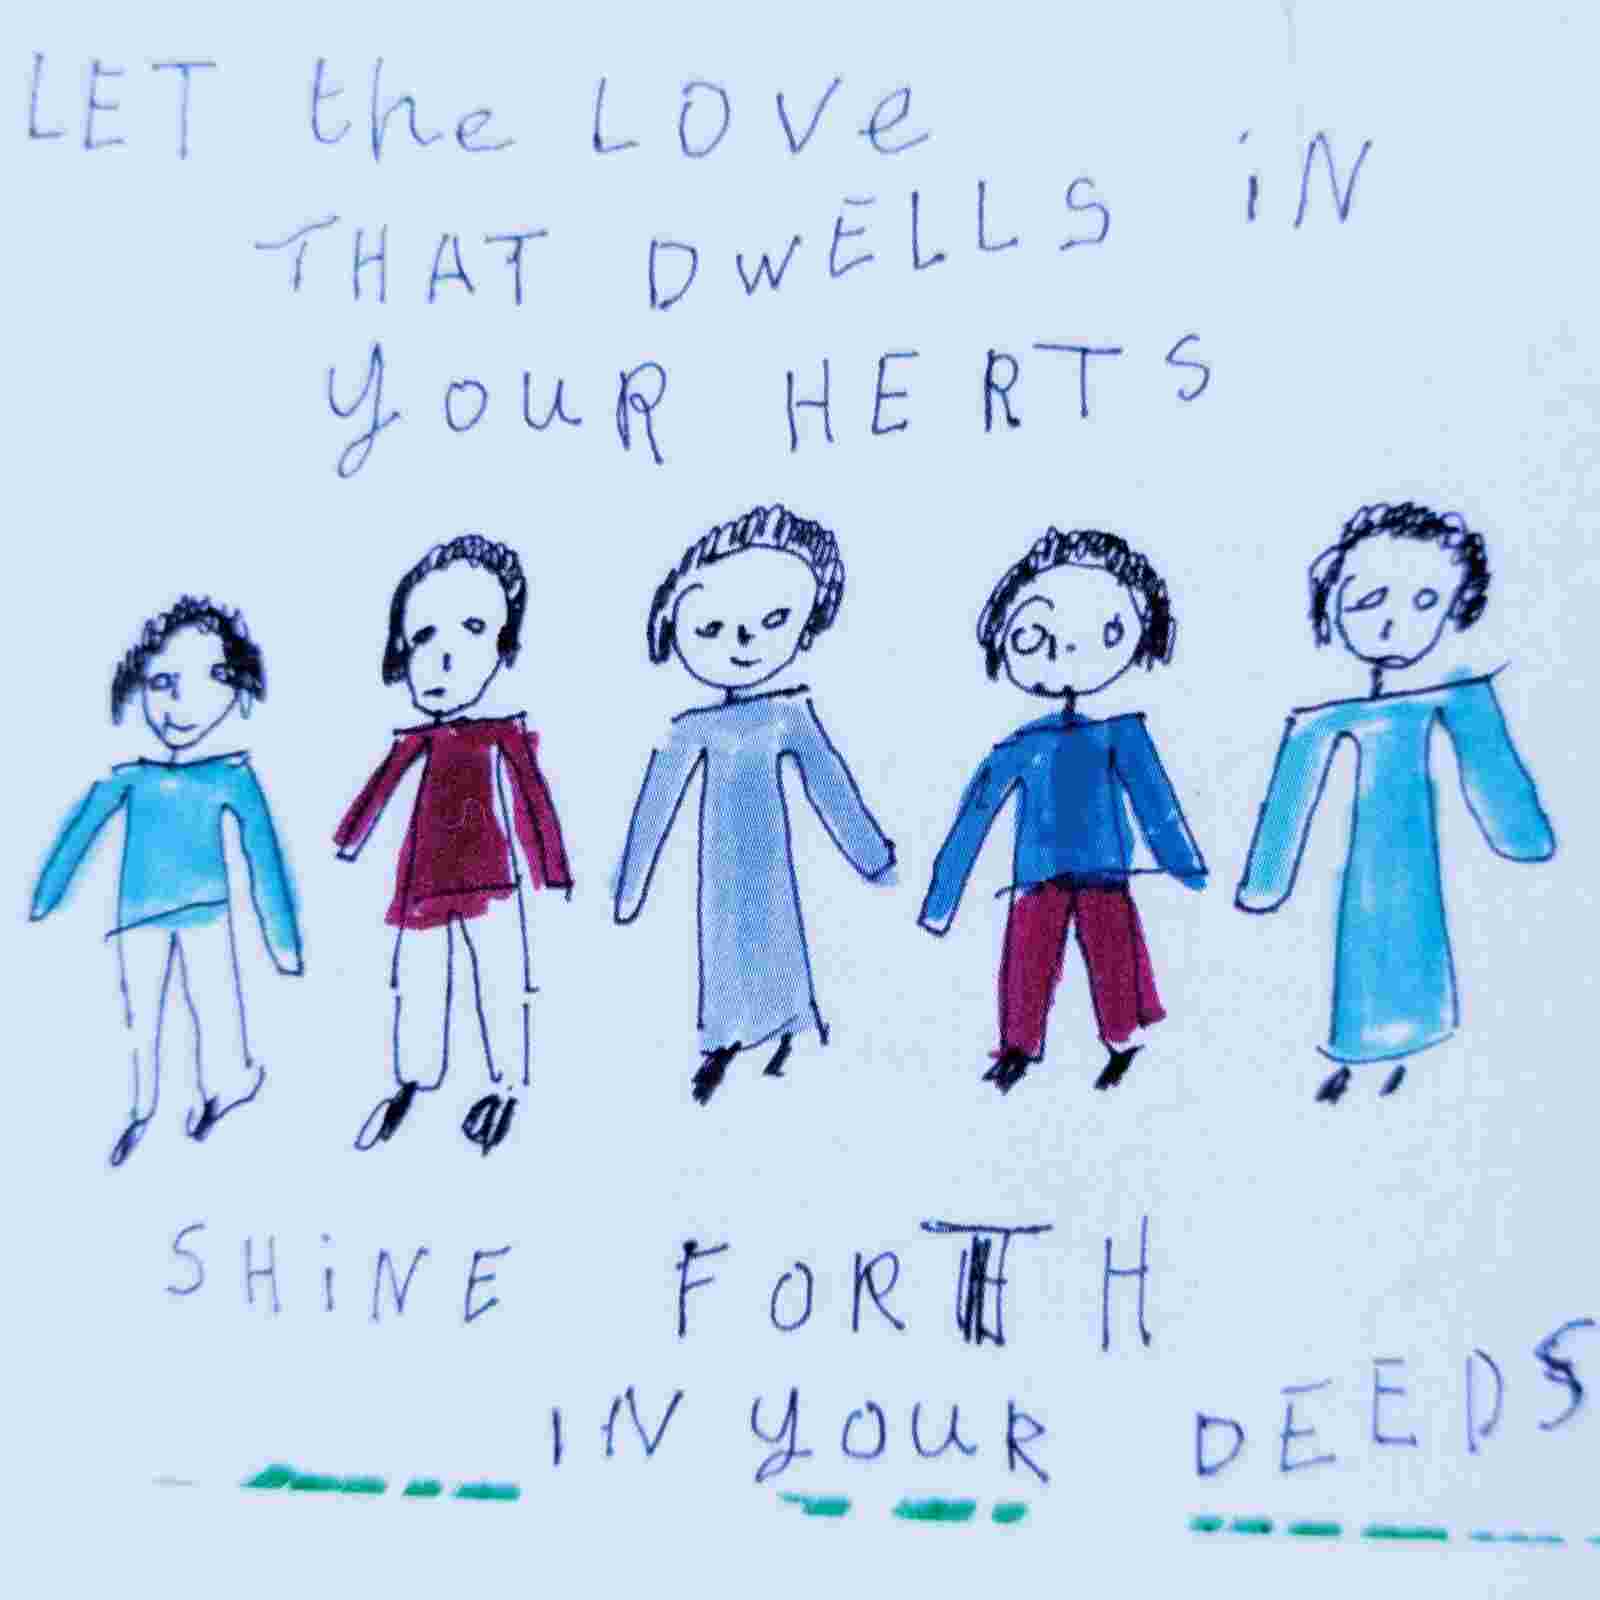 LET the LOVe
THAT DWELLS iN
YOUR HERTS
SHiNE FORTH
IN YOUR DEEDS